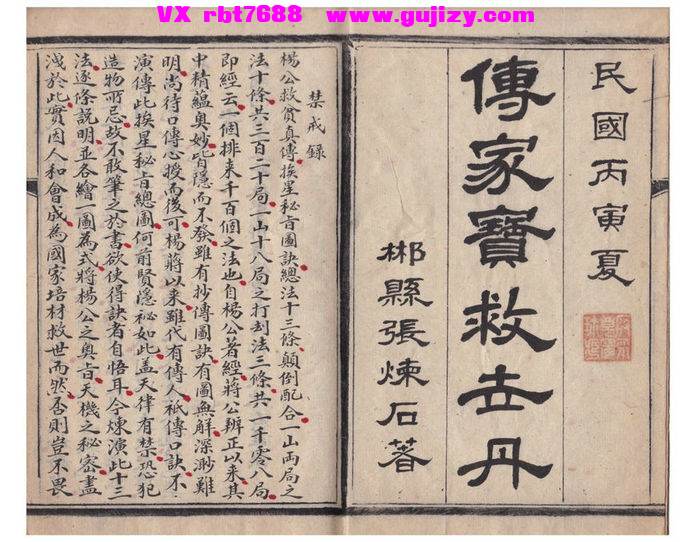 VX rbt7688 www.gujizy.com
民國丙寅夏
傳家寶救世丹
郴縣張煉石著
禁戒錄
楊公救貧真傳挨星秘旨圖訣總法十三條顛倒配合一山兩局之
法十條共三百二十局一山十八局之打刦法三條共一千零八局
即經云一個排來千百個之法也自楊公著經蔣公辨正以來其
中精蘊奧妙皆隱而不發雖有抄傳圖訣有圖無解深渺難
明尚待口傳心授而後可楊蔣以來雖代有傳人祇傳口訣不
演傳此挨星秘旨總圖何前賢隱秘如此盖天律有禁恐犯
造物所忌故不敢筆之於書欲使得訣者自悟耳今煉演此十三
法逐條說明並各繪一圖為式將楊公之奧旨天機之秘密盡
洩於此實因人和會成為國家培材救世而然否則豈不畏